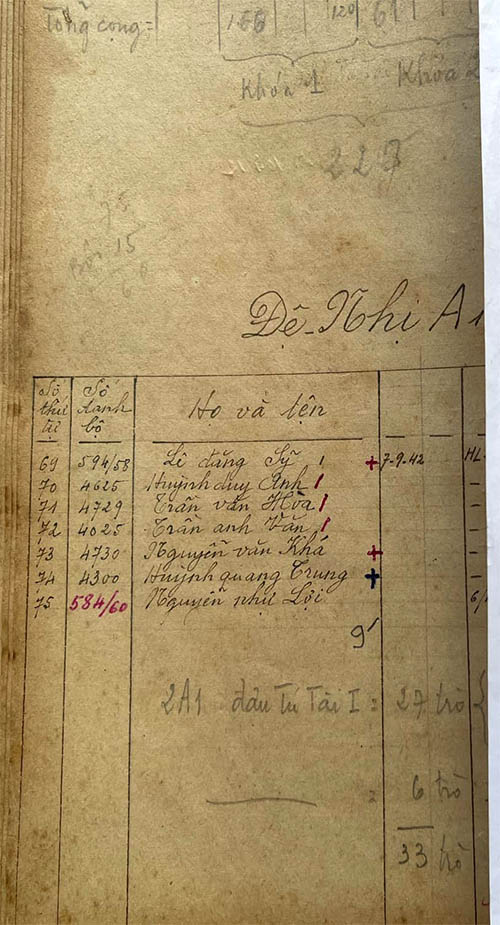 Tổng cộng = 166 120 61
Khóa 1 Khóa 2
227
15
60
Đệ-Nhị A1
Số thứ tự Số danh bộ Họ và tên
69 594/58 Lê đăng Sỹ 7-9-42 HL.
70 4625 Huỳnh duy Anh -
71 4729 Trần văn Hòa -
72 4025 Trần anh Văn -
73 4730 Nguyễn văn Khá + -
74 4300 Huỳnh quang Trung + -
75 584/60 Nguyễn như Lợi 6/
9'
2A1 đậu Tú Tài I = 27 trò {
= 6 trò
33 trò